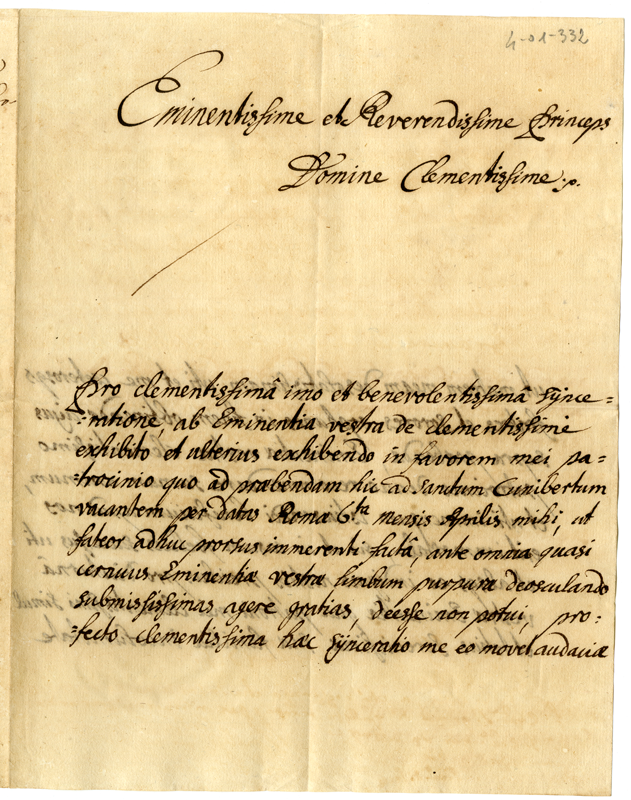 4-01-332
Eminentissime et Reverendissime Princeps
Domine Clementissime
Pro clementissimâ imo et benevolentissimâ synce=
=ratione, ab Eminentia vestra de clementissimè
exhibito et ulterius exhibendo in favorem mei pa=
=trocinio quo ad præbendam hic ad Sanctum Cunibertum
vacantem per datas Romæ 6ta mensis Aprilis mihi, ut
fateor adhuc prorsus immerenti factâ, ante omnia quasi
cernuus Eminentiæ vestræ limbum purpuræ deosculando
submississimas agere gratias, deesse non potui, pro=
=fecto clementissima hæc synceratio me eo movet audaciæ